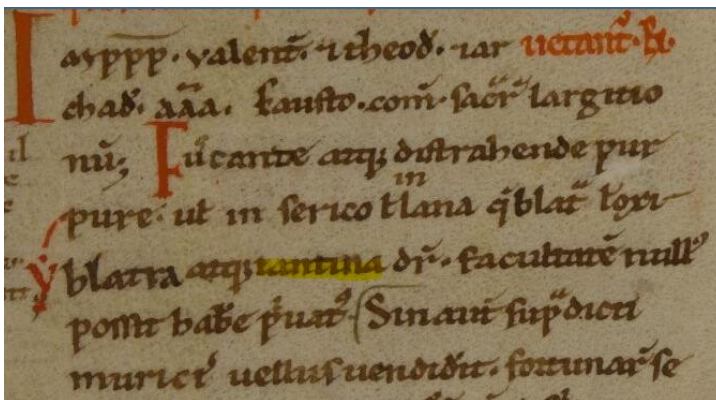 Iasppp. valent̄. ⁊ theod̄. ⁊ ar uetant᷑.
chad̄. aāa. fausto. com̄. sacr̄ᷓ largitio
nū; Fucande atq; distrahende pur
pure. ul̄ in serico ul̄ in lana q̄ blatᷓ ul̄ oxi
blatta atq; iantina dr̄. facultatē null᷒
possit habe᷑ p̄uat᷒. Sin aut̄ sup̄dicti
muricꝭ uellus uendidit. fortunaꝝ se